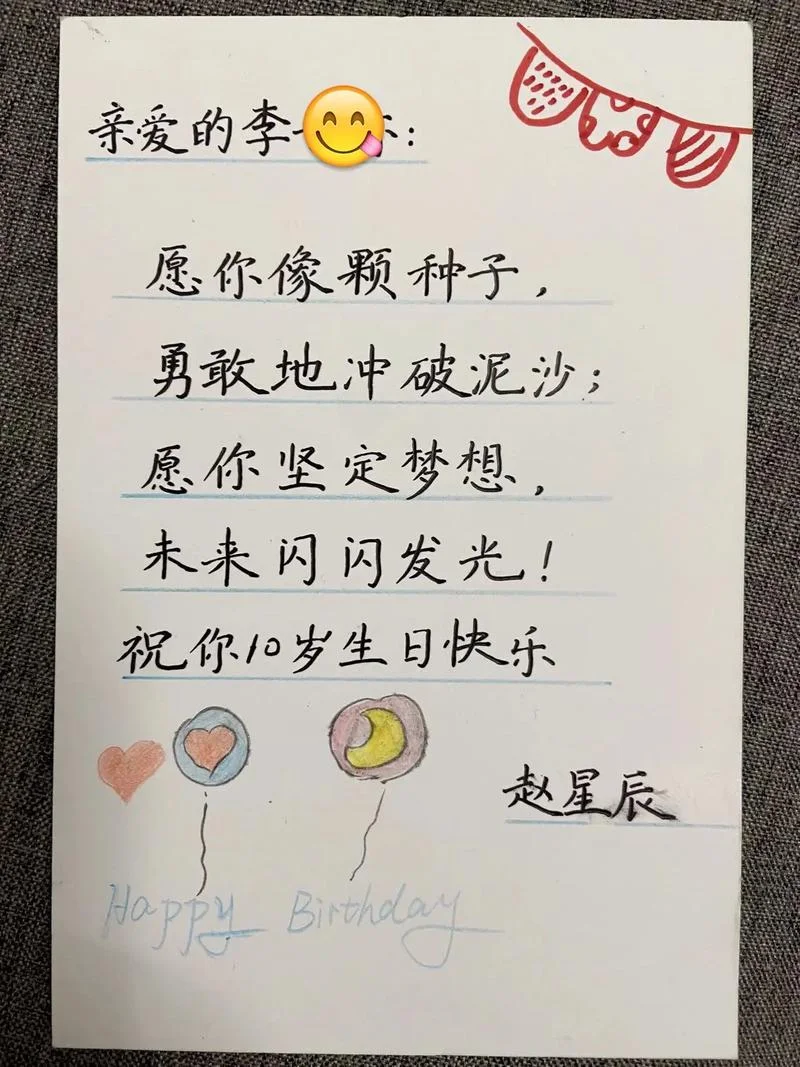 亲爱的李：
愿你像颗种子，
勇敢地冲破泥沙；
愿你坚定梦想，
未来闪闪发光！
祝你10岁生日快乐
赵星辰
Happy Birthday